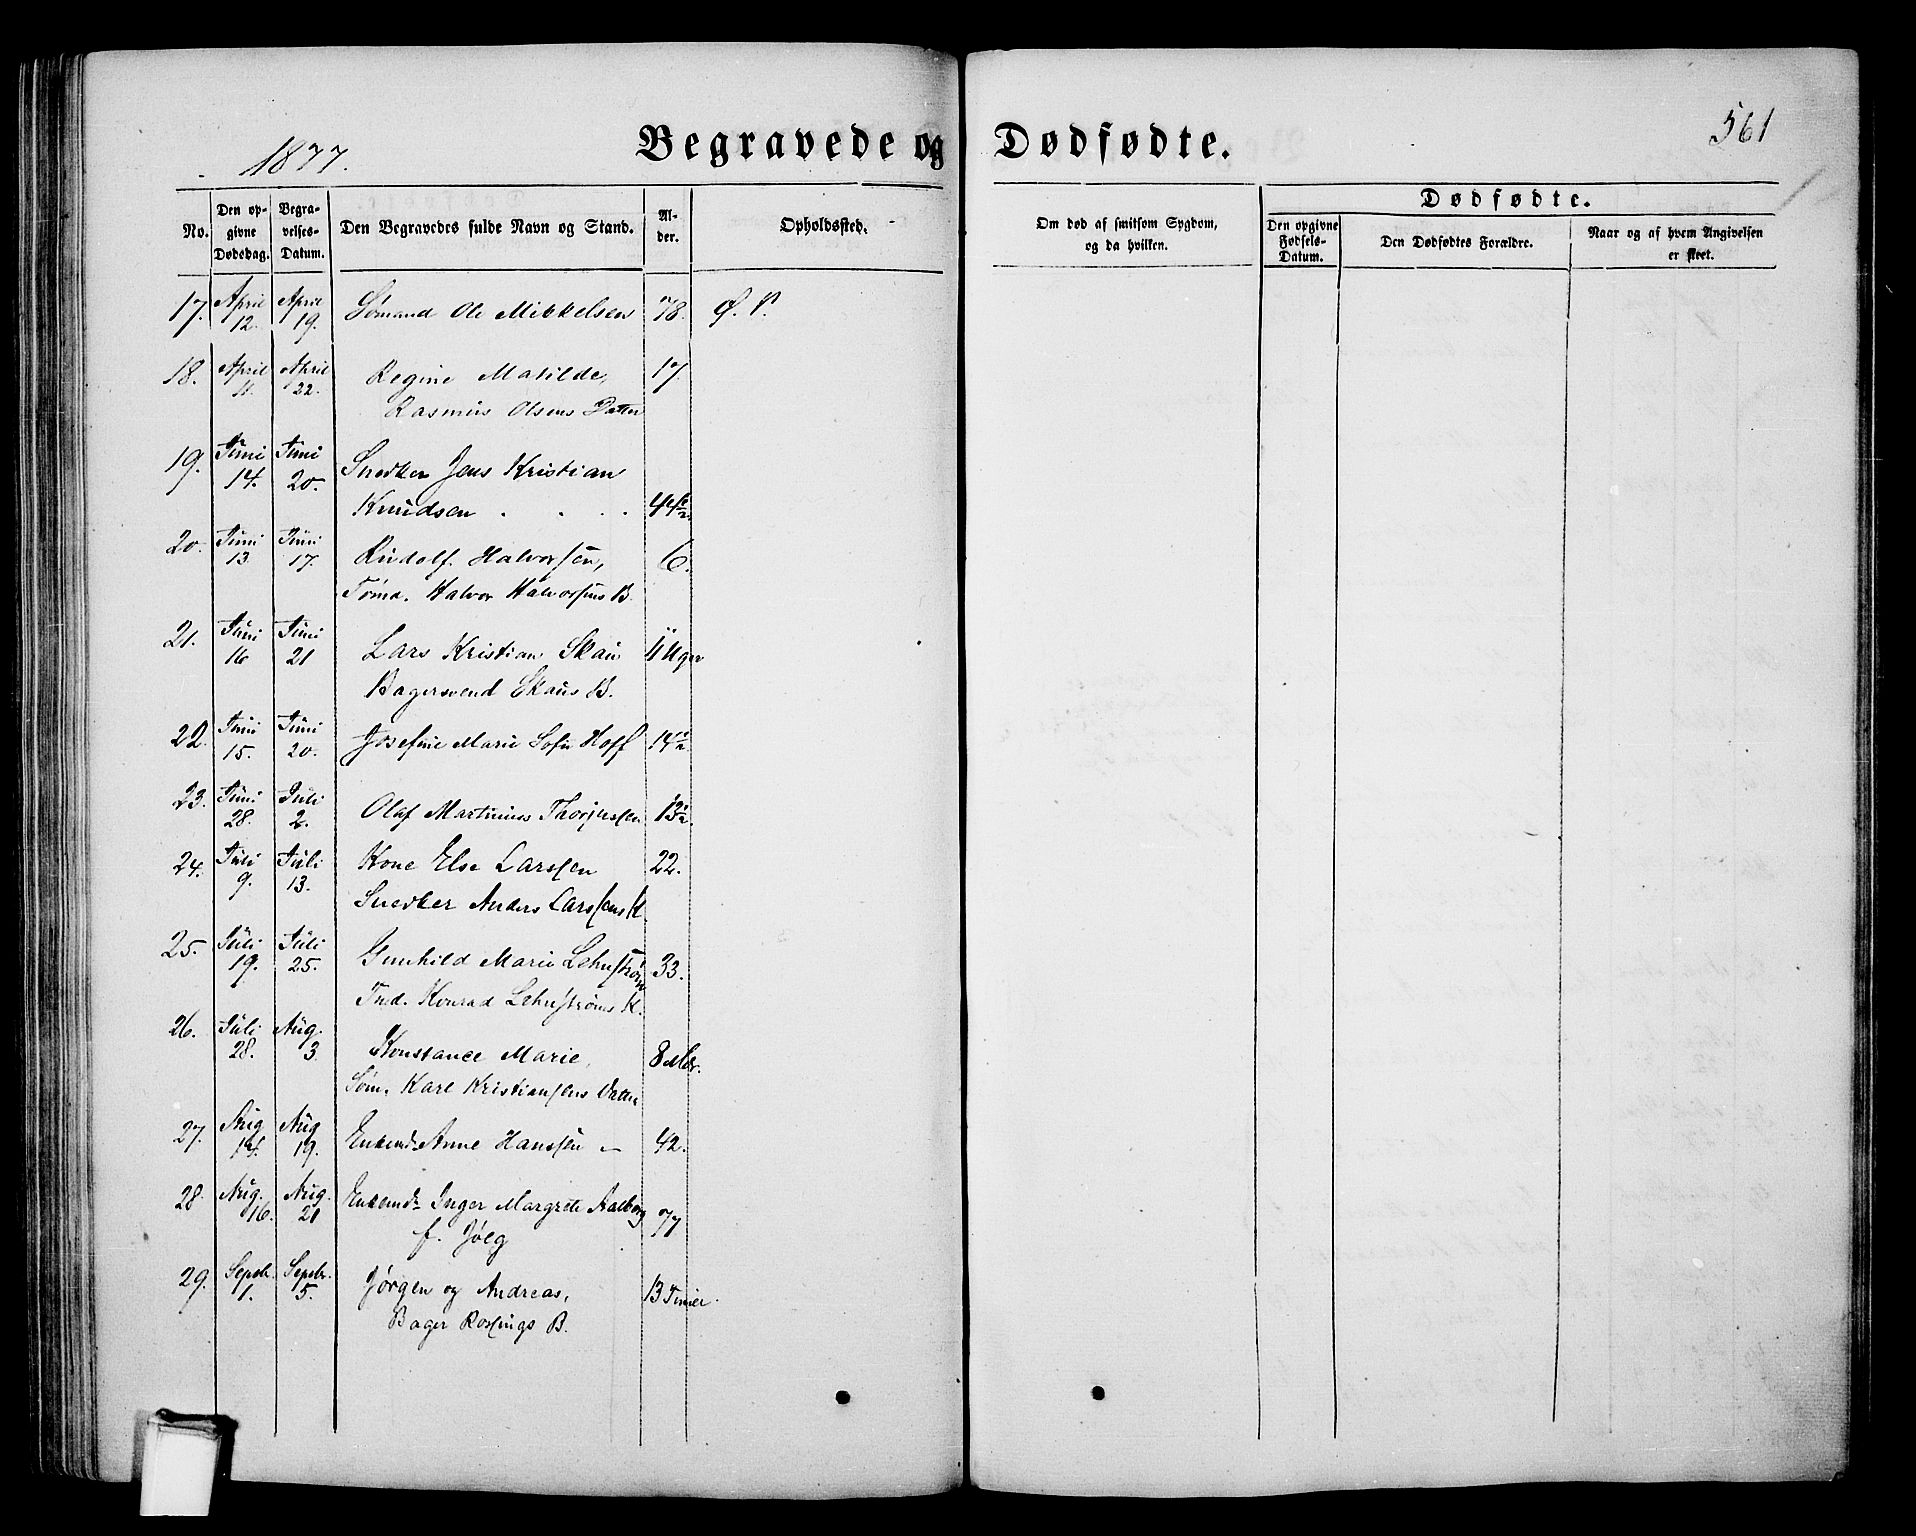 1877.
Begravede og Dødfødte.
561
No.
Den opgivne Dødsdag.
Begravelses-Datum.
Den Begravedes fulde Navn og Stand.
Alder.
Opholdssted.
Om død af smitsom Sygdom, og da hvilken.
Dødfødte.
Den opgivne Fødsels-Datum.
Den Dødfødtes Forældre.
Naar og af hvem Angivelsen er skeet.
17. April 12. April 19. Sømand Ole Mikkelsen 78. Ø. P.
18. April 11. April 22. Regine Matilde, 17.
Rasmus Olsens Datter
19. Juni 14. Juni 20. Snedker Jens Kristian
Knudsen . . . 44½.
20. Juni 13. Juni 17. Rudolf Halvorsen, 6.
Tømd. Halvor Halvorsens B.
21. Juni 16 Juni 21 Lars Kristian Skau 11 Uger
Bagersvend Skaus B.
22. Juni 15. Juni 20. Josefine Marie Sofie Hoff 14½.
23. Juni 28. Juli 2. Olaf Martinius Thorjussen 13½.
24. Juli 9. Juli 13. Kone Else Larssen 22.
Snedker Anders Larssens K.
25. Juli 19. Juli 25. Gunhild Marie Lehnström 33.
Konrad Lehnströms K.
26. Juli 28. Aug. 3 Konstance Marie, 8 Mdr.
Søm. Karl Kristiansens Datter
27. Aug 14. Aug 19. Enkemd. Anne Hanssen – 42.
28. Aug. 16. Aug. 21 Enkemd. Inger Margrete Aalborg 77
f. Jølg
29. Septb. 1. Septbr. 5. Jørgen og Andreas, 13 Timer.
Bager Rossings B.